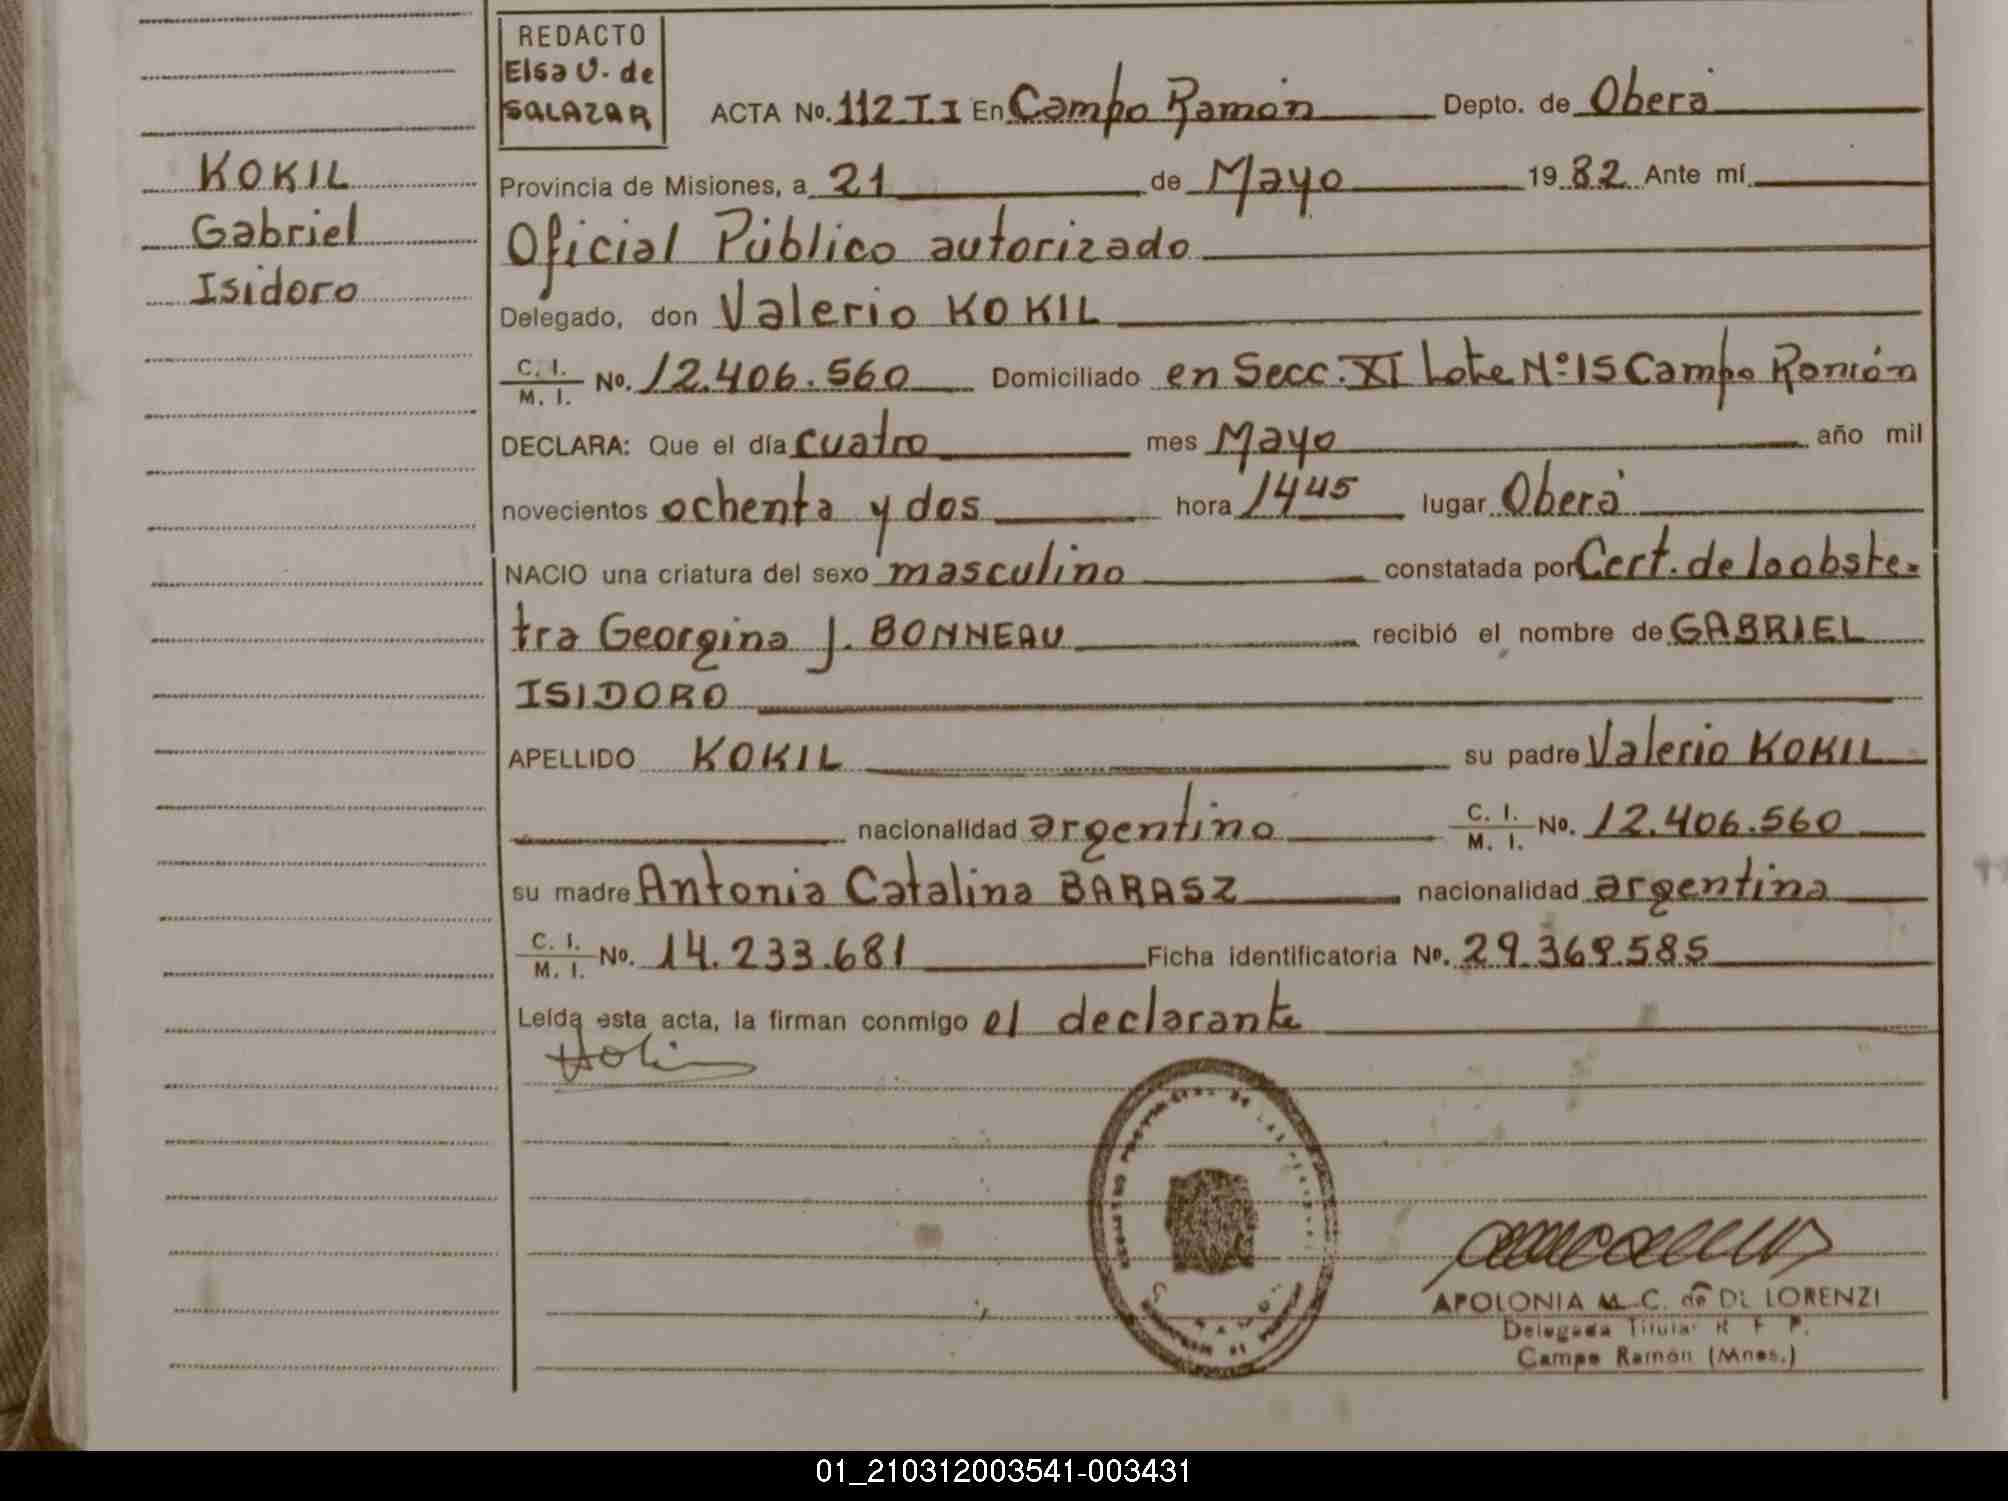 REDACTO
Elsa V. de
SALAZAR
ACTA No. 112 II En Campo Ramón Depto. de Oberá
KOKIL
Gabriel
Isidoro
Provincia de Misiones, a 21 de Mayo 1982 Ante mí
Oficial Público autorizado
Delegado, don Valerio KOKIL
C. I. / M. I. No. 12.406.560 Domiciliado en Secc. XI Lote Nº 15 Campo Ramón
DECLARA: Que el día cuatro mes Mayo año mil
novecientos ochenta y dos hora 1445 lugar Oberá
NACIO una criatura del sexo masculino constatada por Cert. de la obste-
tra Georgina J. BONNEAU recibió el nombre de GABRIEL
ISIDORO
APELLIDO KOKIL su padre Valerio KOKIL
nacionalidad argentino C. I. / M. I. No. 12.406.560
su madre Antonia Catalina BARASZ nacionalidad argentina
C. I. / M. I. No. 14.233.681 Ficha identificatoria No. 29.369.585
Leída esta acta, la firman conmigo el declarante
APOLONIA M. C. de DI LORENZI
Delegada Titular R. P.
Campo Ramón (Mnes.)
01_210312003541-003431